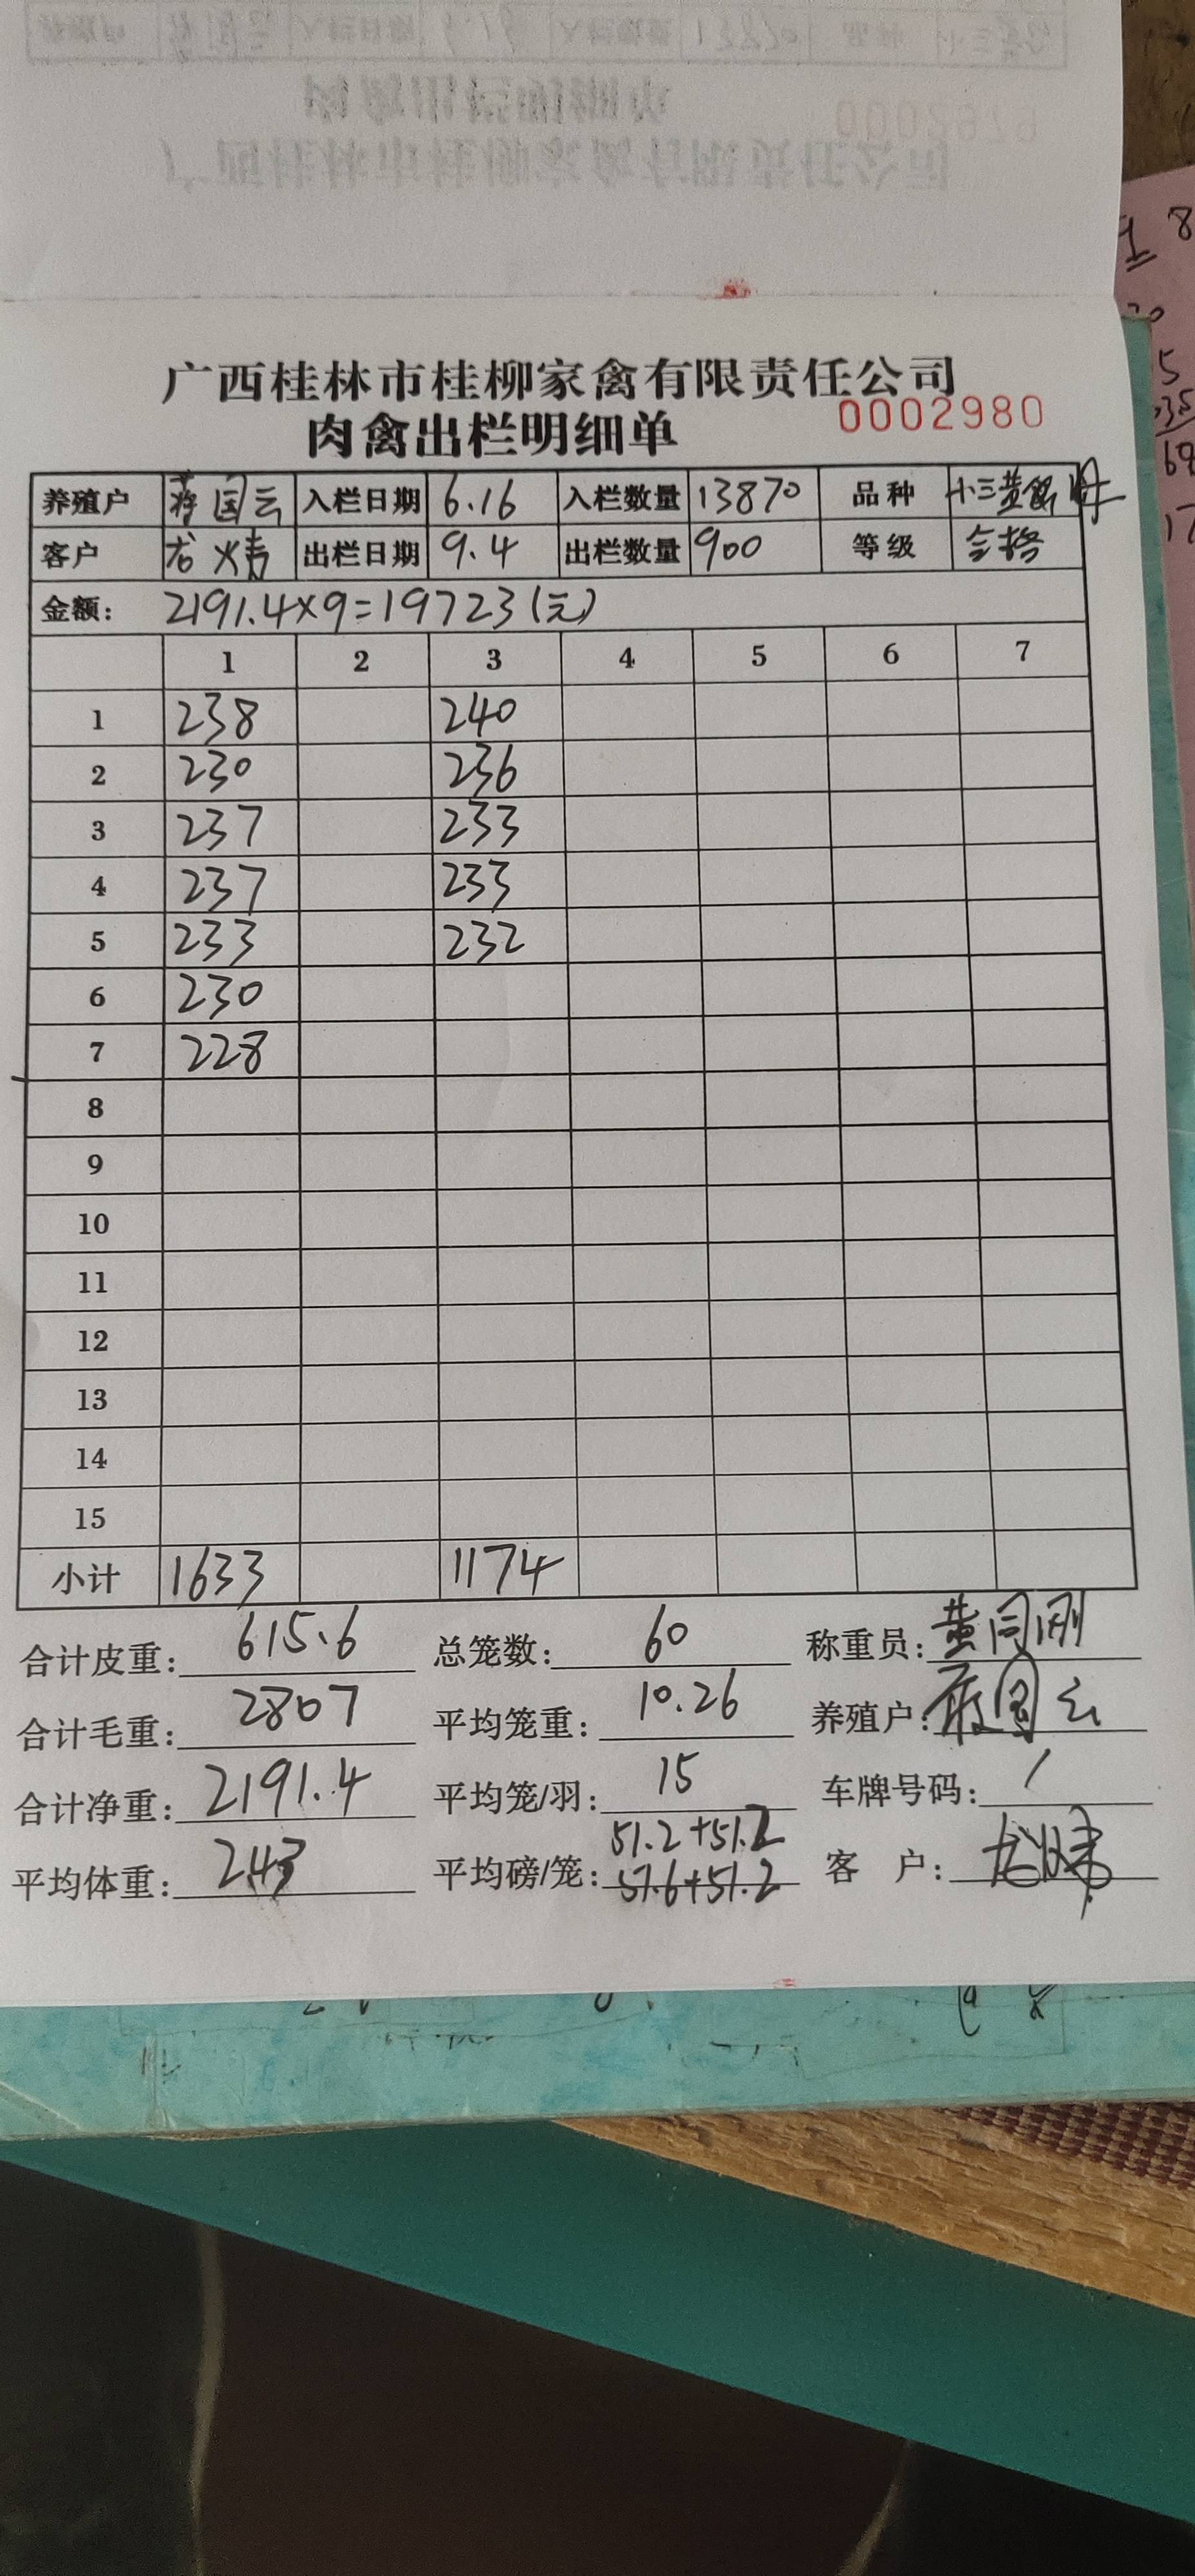 广西桂林市桂柳家禽有限责任公司
肉禽出栏明细单 0002980
养殖户 蒋国云 入栏日期 6.16 入栏数量 13870 品种 小三黄
客户 龙 出栏日期 9.4 出栏数量 900 等级 合格
金额: 2191.4×9=19723(元)
1 2 3 4 5 6 7
1 238 240
2 230 236
3 237 233
4 237 233
5 233 232
6 230
7 228
8
9
10
11
12
13
14
15
小计 1633 1174
合计皮重: 615.6 总笼数: 60 称重员: 黄同刚
合计毛重: 2807 平均笼重: 10.26 养殖户: 国云
合计净重: 2191.4 平均笼/羽: 15 车牌号码: /
51.2+51.2
平均体重: 2.43 平均磅/笼: 51.6+51.2 客 户: 龙